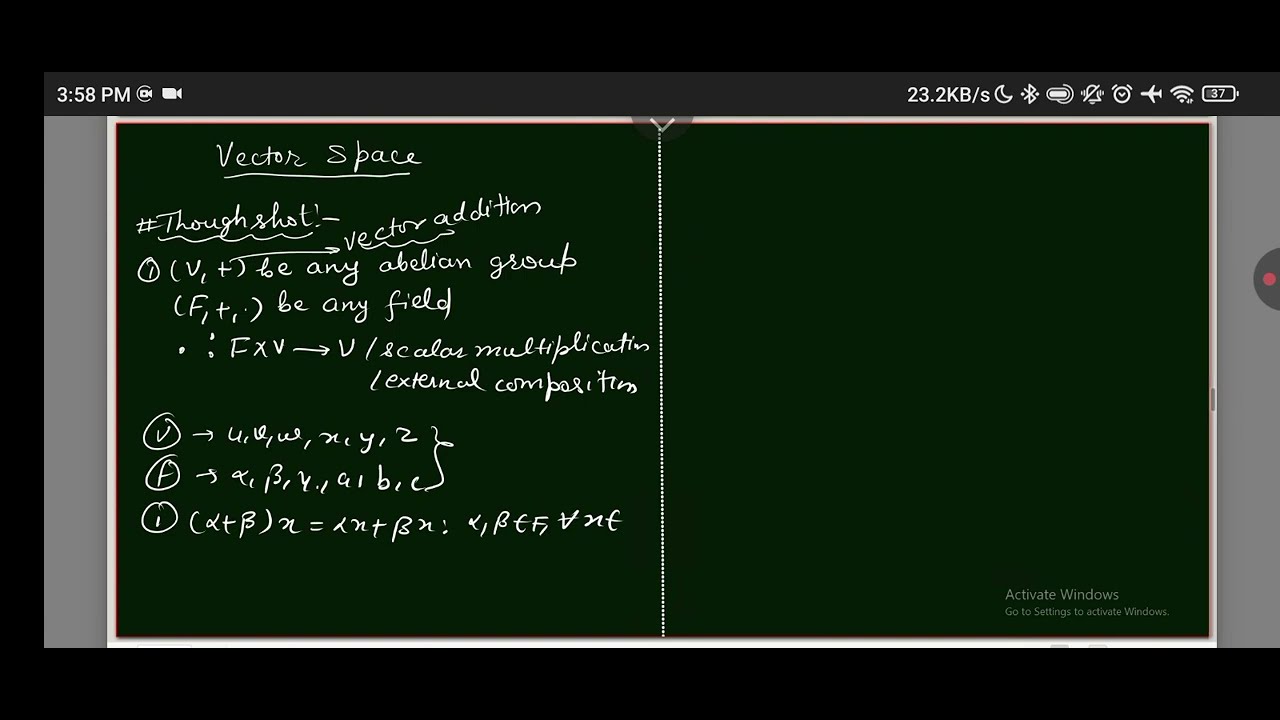 3:58 PM
23.2KB/s
37
Vector Space
#Thoughshot:-
vector addition
① (V, +) be any abelian group
(F, +, .) be any field
. : F×V → V / scalar multiplication
/ external composition
Ⓥ → u, v, w, x, y, z }
Ⓕ → α, β, γ, a, b, c }
① (α+β)x = αx+βx : α, β∈F, ∀x∈
Activate Windows
Go to Settings to activate Windows.